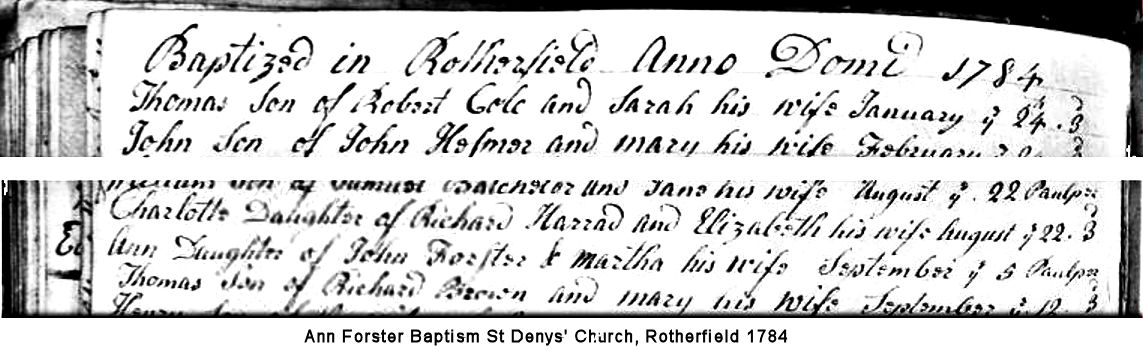 Baptized in Rotherfield Anno Domi 1784
Thomas Son of Robert Cole and Sarah his wife January ye 24. 3d
John Son of John Hesmer and mary his wife February
William Son of Samuel Batcheler and Jane his wife August ye. 22 Paulper
Charlotte Daughter of Richard Harrad and Elizabeth his wife August ye 22. 3d
Ann Daughter of John Forster & martha his wife September ye 5 Paulper
Thomas Son of Richard Brown and mary his wife September ye 12. 3d
Henry Son of
Ann Forster Baptism St Denys' Church, Rotherfield 1784